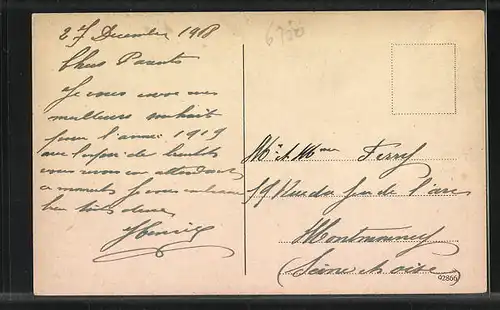 27 Decembre 1918
Chers Parents
Je vous envoie mes
meilleurs souhait
pour l'année 1919
avec l'espoir de bientôt
vous voir en attendant
ce moment je vous embrasse
bien tous deux
Henri
6750
Mr et Mme Ferry
59 Rue du Jeu de l'arc
Montmorency
(Seine et Oise)
92866